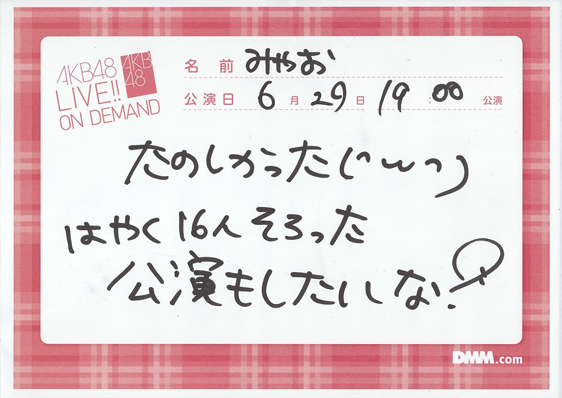 AKB48
LIVE!!
ON DEMAND
AKB
48
名前 みやお
公演日 6月29日 19:00公演
たのしかった(^ω^)
はやく16人そろった
公演もしたいな!
DMM.com